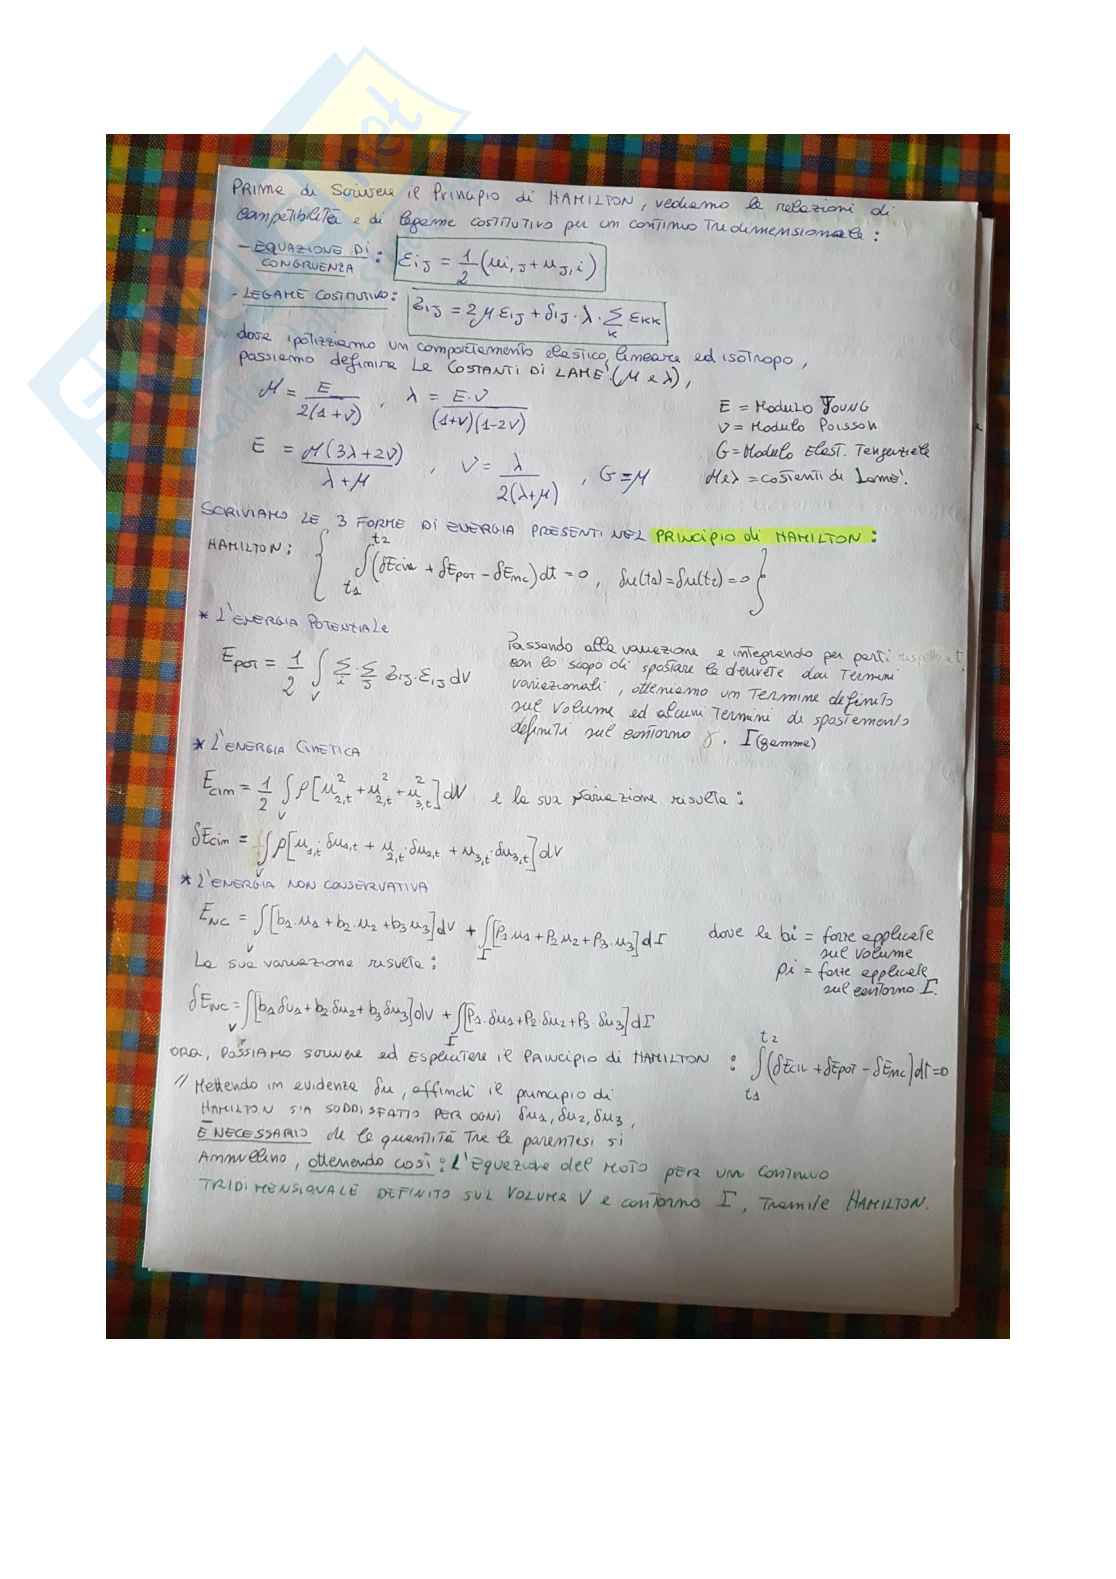 PRIMA di Scrivere il Principio di HAMILTON, vediamo le relazioni di
compatibilità e di legame costitutivo per un continuo Tridimensionale:
- EQUAZIONE DI CONGRUENZA : εij = 1/2 (ui,j + uj,i)
- LEGAME COSTITUTIVO: σij = 2μ εij + δij · λ · Σk εkk
dove ipotizziamo un comportamento elastico, lineare ed isotropo,
possiamo definire Le COSTANTI DI LAMÈ (μ e λ),
μ = E / 2(1+ν) , λ = E·ν / (1+ν)(1-2ν)
E = μ(3λ+2ν) / λ+μ , ν = λ / 2(λ+μ) , G = μ
E = Modulo YOUNG
ν = Modulo Poisson
G = Modulo Elast. Tangenziale
μ e λ = costanti di Lamè.
SCRIVIAMO LE 3 FORME DI ENERGIA PRESENTI NEL PRINCIPIO di HAMILTON:
HAMILTON: { ∫t1t2 (δEcin + δEpot - δEnc) dt = 0 , δu(t1) = δu(t2) = 0 }
* L'ENERGIA POTENZIALE
Epot = 1/2 ∫V Σi · Σj σij · εij dV
Passando alla variazione e integrando per parti rispetto a t,
con lo scopo di spostare le derivate dai Termini
variazionali, otteniamo un Termine definito
sul Volume ed alcuni Termini di spostamento
definiti sul contorno γ. Γ (gamma)
* L'ENERGIA CINETICA
Ecin = 1/2 ∫V ρ[u²2,t + u²2,t + u²3,t] dV e la sua variazione risulta:
δEcin = ∫V ρ[u1,t · δu1,t + u2,t · δu2,t + u3,t · δu3,t] dV
* L'ENERGIA NON CONSERVATIVA
ENC = ∫V [b1·u1 + b2·u2 + b3u3] dV + ∫Γ [P1·u1 + P2u2 + P3·u3] dΓ
dove le bi = forze applicate
sul volume
pi = forze applicate
sul contorno Γ.
La sua variazione risulta:
δENC = ∫V [b1δu1 + b2·δu2 + b3δu3] dV + ∫Γ [P1·δu1 + P2·δu2 + P3·δu3] dΓ
ORA, POSSIAMO scrivere ed Esplicitare il PRINCIPIO di HAMILTON : ∫t1t2 (δEcin + δEpot - δEnc) dt = 0
// Mettendo in evidenza δu, affinchè il principio di
HAMILTON SIA SODDISFATTO PER OGNI δu1, δu2, δu3,
È NECESSARIO che le quantità Tra le parentesi si
Annullino, ottenendo così: L'Equazione del Moto per un Continuo
TRIDIMENSIONALE DEFINITO SUL VOLUME V e contorno Γ, Tramite HAMILTON.